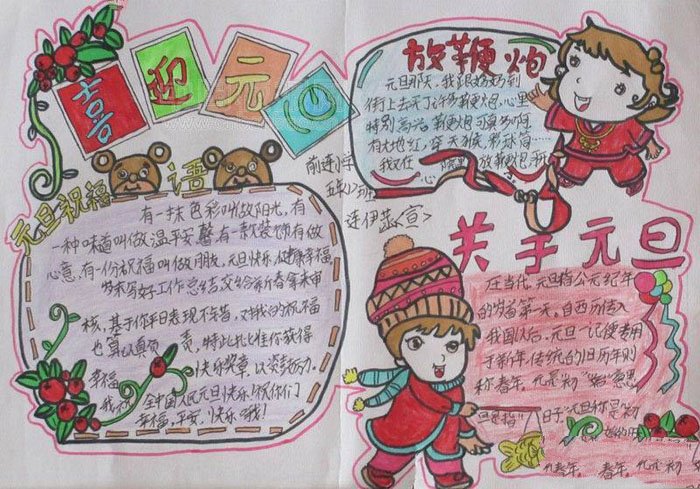 喜迎元旦
元旦祝福语
有一抹色彩叫做阳光,有
一种味道叫做温馨
心意,有一份祝福叫做朋友,元旦快乐,健康幸福
岁末写好工作总结交给新春拿来审
核,基于你平日表现不错,对我的祝福
也算认真负责,特此批准你获得
幸福快乐奖章,以兹鼓励。
我祝全中国人民元旦快乐!祝你们
幸福,平安,快乐
前进小学
放鞭炮
元旦那天,我跟妈妈到
街上去买了许多鞭炮,心里
特别高兴。鞭炮可真多啊
有大地红,穿天猴,彩珠筒
我又在
放鞭炮
关于元旦
在当代,元旦指公元纪年
的岁首第一天。自西历传入
我国以后,元旦一词便专
于新年,传统的旧历年则
称春年。元是“初”“始”意思
旦是指“日子”元旦称是“初
春年。 春年。元是初